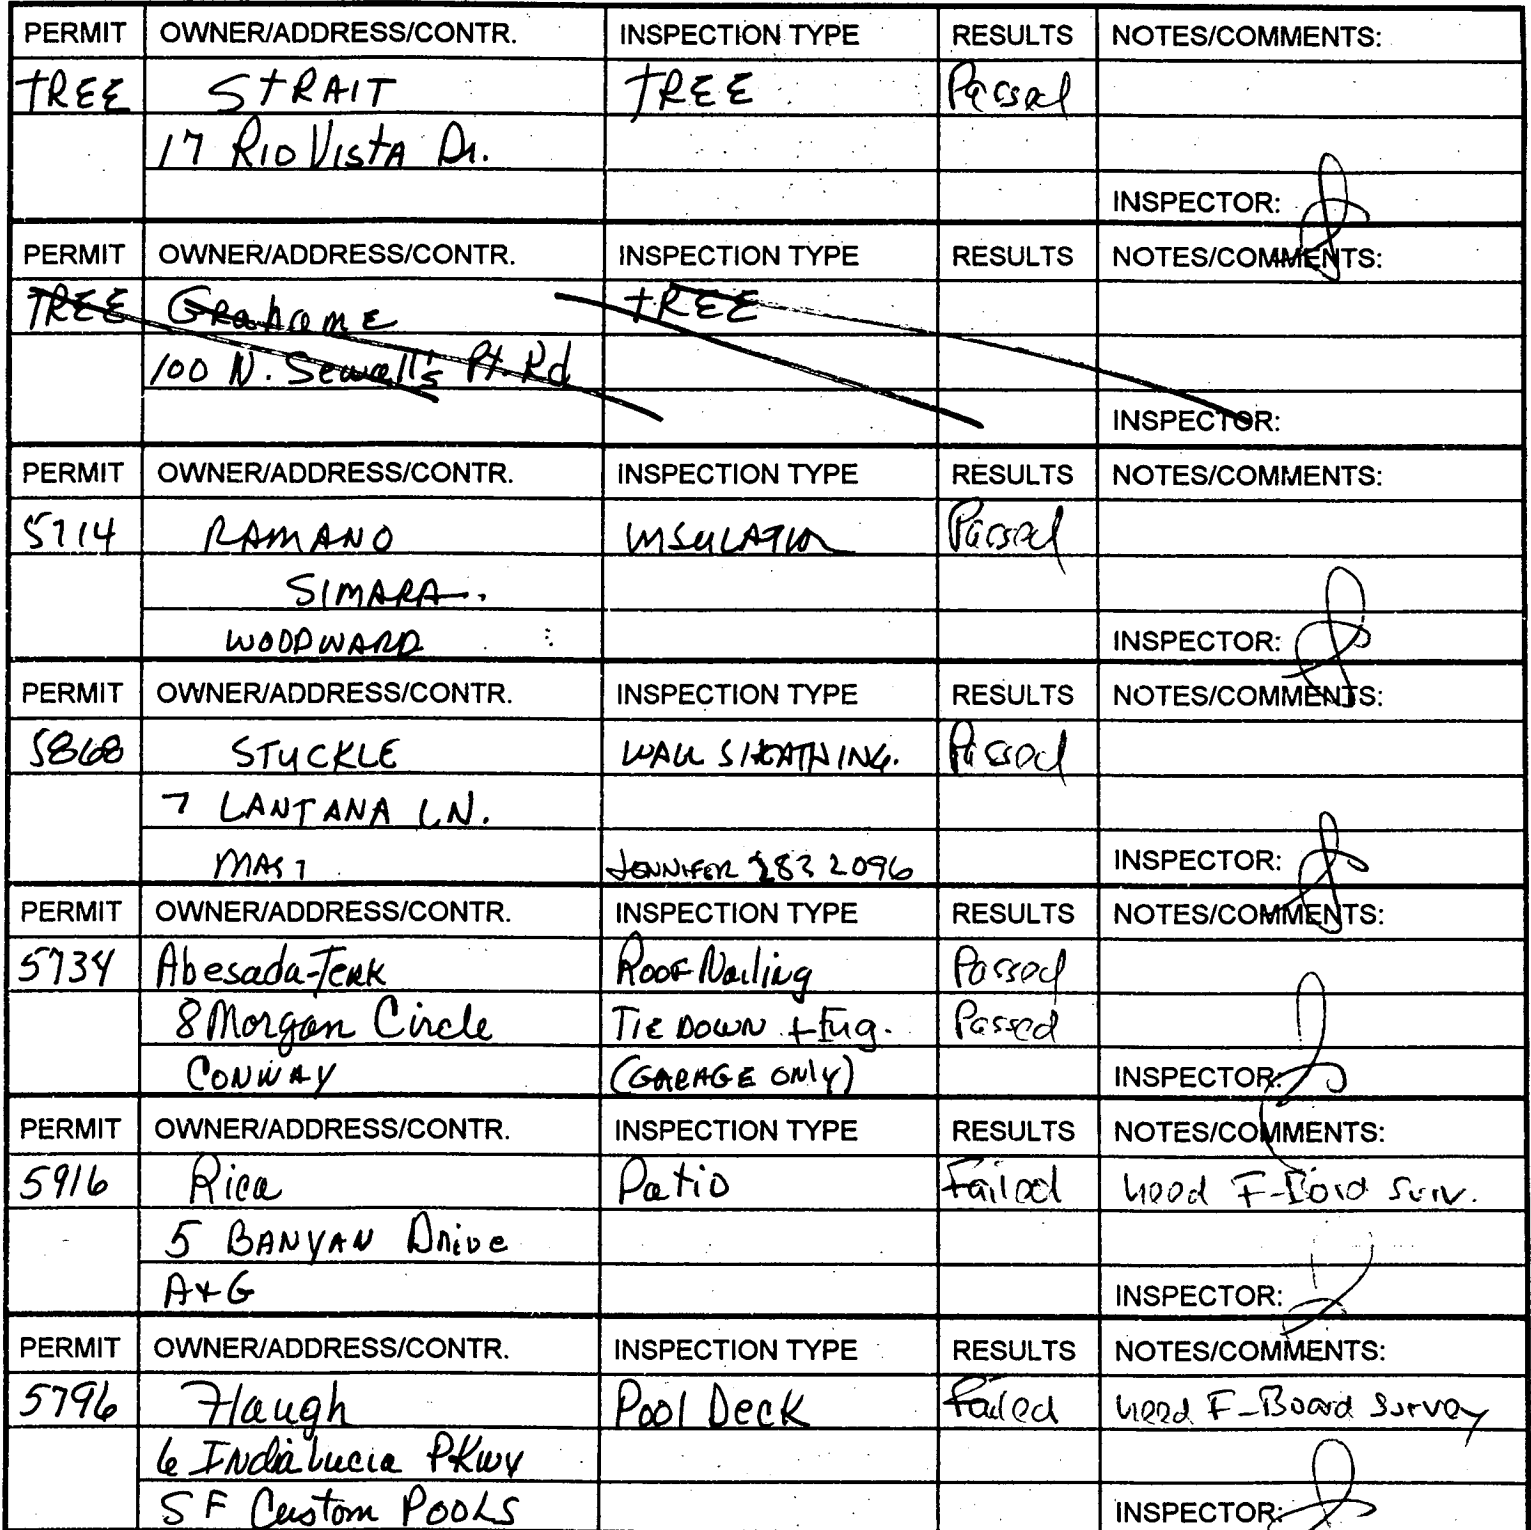 PERMIT OWNER/ADDRESS/CONTR. INSPECTION TYPE RESULTS NOTES/COMMENTS:
TREE STRAIT TREE Passed
17 Rio Vista Dr.
INSPECTOR:
PERMIT OWNER/ADDRESS/CONTR. INSPECTION TYPE RESULTS NOTES/COMMENTS:
TREE Grahame TREE
100 N. Sewall's Pt. Rd
INSPECTOR:
PERMIT OWNER/ADDRESS/CONTR. INSPECTION TYPE RESULTS NOTES/COMMENTS:
5714 RAMANO INSULATION Passed
SIMARA.
WOODWARD INSPECTOR:
PERMIT OWNER/ADDRESS/CONTR. INSPECTION TYPE RESULTS NOTES/COMMENTS:
5868 STUCKLE WALL SHEATHING. Passed
7 LANTANA LN.
JENNIFER 283 2096 INSPECTOR:
PERMIT OWNER/ADDRESS/CONTR. INSPECTION TYPE RESULTS NOTES/COMMENTS:
5734 Abesada-Terk Roof Nailing Passed
8 Morgan Circle TIE DOWN + Eng. Passed
CONWAY (GARAGE ONLY) INSPECTOR:
PERMIT OWNER/ADDRESS/CONTR. INSPECTION TYPE RESULTS NOTES/COMMENTS:
5916 Rica Patio Failed need Surv.
5 BANYAN Drive
A+G INSPECTOR:
PERMIT OWNER/ADDRESS/CONTR. INSPECTION TYPE RESULTS NOTES/COMMENTS:
5796 Haugh Pool Deck Failed need F-Board Survey
6 Indialucia PKwy
SF Custom POOLS INSPECTOR: